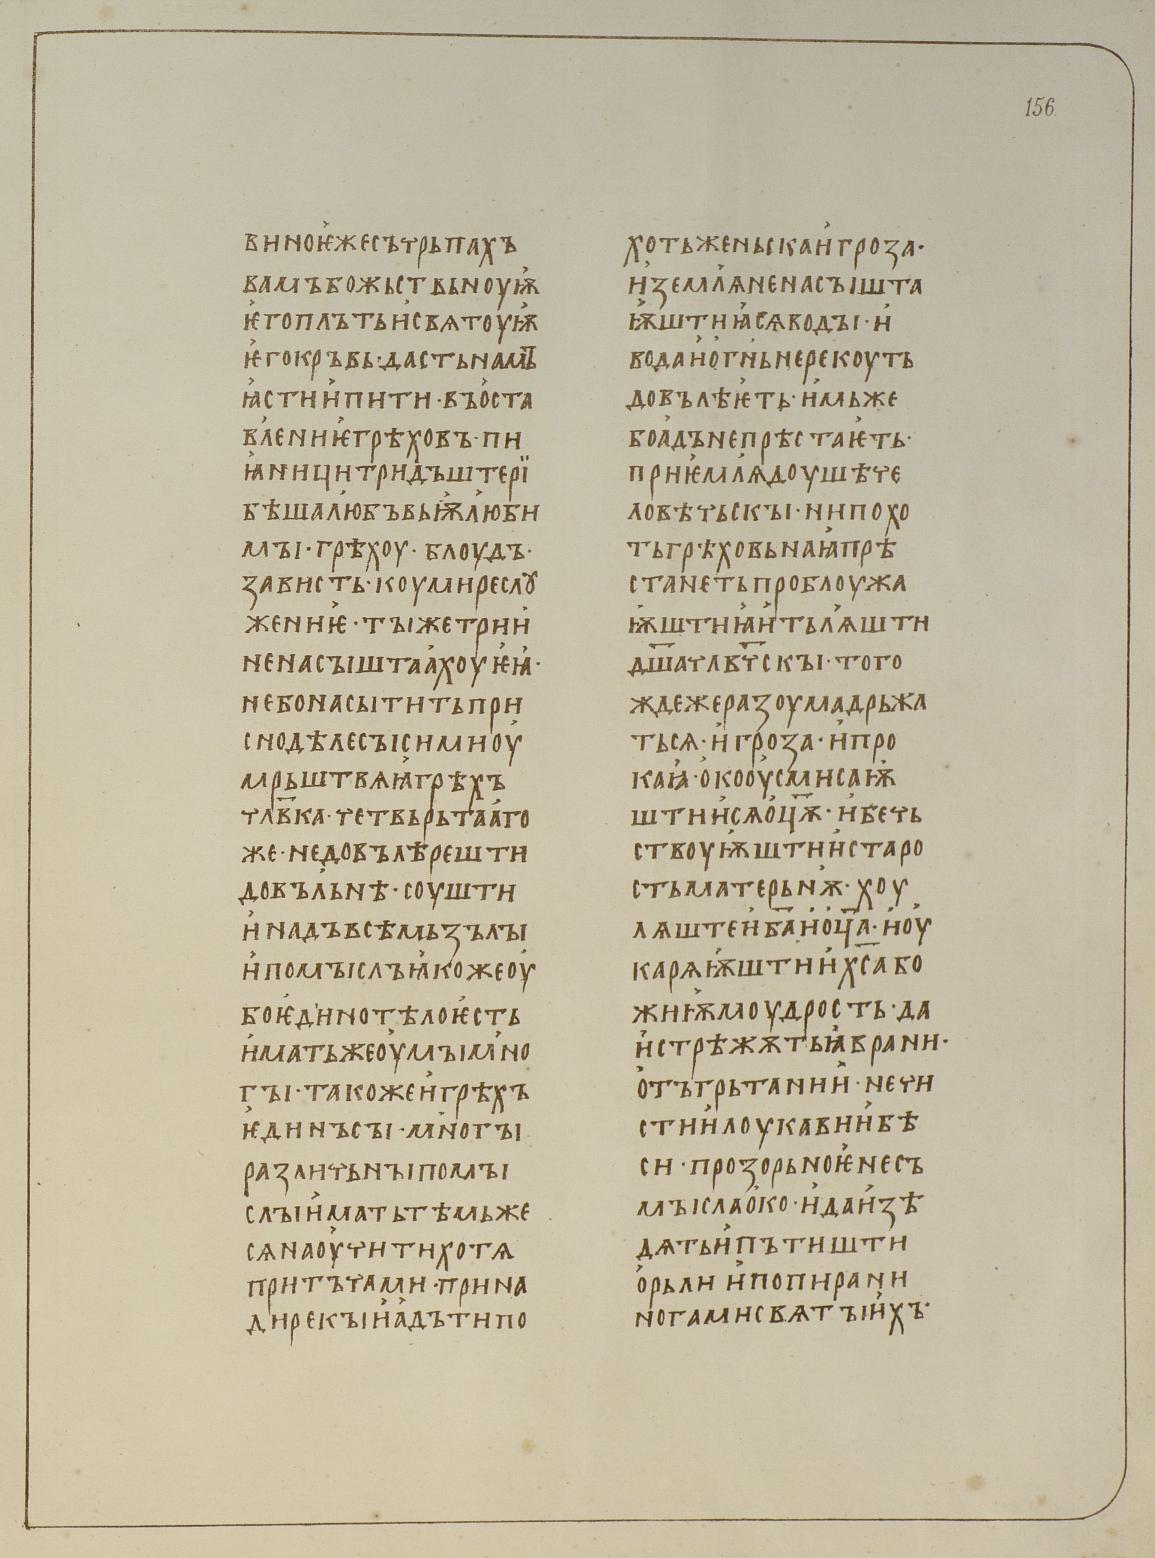 156
вино ѥже съчрьпахъ
вамъ божьствьноуѭ
ѥго плъть и свѧтоуѭ
ѥго кръвь· дасть намъ
ꙗсти и пити· въ оста
влениѥ грѣховъ· пи
ꙗници три дъштері
бѣша любъвьѭ люби
мы· грѣхоу· блоудъ·
зависть· коумирослꙋ
жениѥ· ты же три и
ненасыштаахоу ѥꙗ·
не бо насытить при
сно дѣлесы сими оу
мрьштвѧꙗ грѣхъ
чл҃вка· четвьртаа го
же· не довълѣ решти
довъльнѣ· соушти
и надъ всѣмь зълы
и помыслъ ꙗкоже оу
бо ѥдино тѣло ѥсть
имать же оумы мно
гы· такоже и грѣхъ
ѥдинъ сы· многы
разлитьны помы
слы имать тѣмьже
сѧ наоучити хотѧ
притъчами· прина
ди рекы и адъ ти по
хоть женьска и гроза·
и землꙗ не насышта
ѭштиꙗсѧ воды· и
вода и огнь не рекоуть
довълѣѥть· имьже
бо адъ не прѣстаѥть·
приѥмлѧ доушѣ че
ловѣчьскы· ни похо
ть грѣховьнаꙗ прѣ
станеть проблоужа
ѭштиꙗ и тьлѧшти
дш҃а члв҃чскы· того
жде же разоума дрьжа
тьсѧ· и гроза· и про
каꙗ· око оусмисаѭ
штиисѧ оц҃ѫ· и бечь
ствоуѭштии старо
сть матерьнѫ· хоу
лѧштеи ба҃ и оц҃а· и оу
карѧѭштии хс҃а бо
жиѭ моудрость· да
истрѣжѫть ꙗ врани·
отъ грьтании· нечи
стии лоукавии бѣ
си· прозорьноѥ несъ
мысла око· и да изѣ
дѧть и пътишти
орьли и попирани
ногами свѧтыихъ·